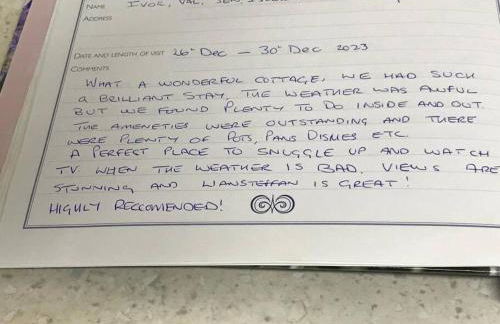 NAME IVOR, VAL, JEN,
ADDRESS
DATE AND LENGTH OF VISIT 26th DEC – 30th DEC 2023
COMMENTS
WHAT A WONDERFUL COTTAGE, WE HAD SUCH
a BRILLIANT STAY, THE WEATHER WAS AWFUL
BUT WE FOUND PLENTY TO DO INSIDE AND OUT.
THE AMENETIES WERE OUTSTANDING AND THERE
WERE PLENTY OF POTS, PANS DISHES ETC.
A PERFECT PLACE TO SNUGGLE UP AND WATCH
TV WHEN THE WEATHER IS BAD. VIEWS ARE
STUNNING AND LLANSTEFFAN IS GREAT!
HIGHLY RECCOMENDED!